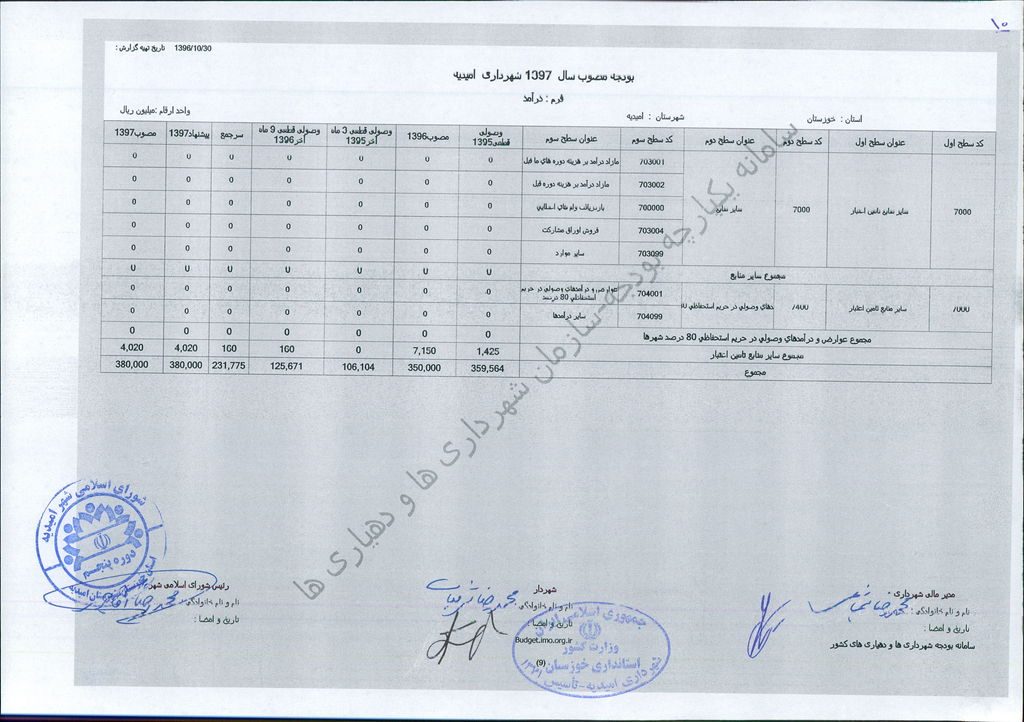 ۱۰
تاریخ تهیه گزارش : 1396/10/30
بودجه مصوب سال 1397 شهرداری امیدیه
فرم : درآمد
استان : خوزستان
شهرستان : امیدیه
واحد ارقام :میلیون ریال
کد سطح اول عنوان سطح اول کد سطح دوم عنوان سطح دوم کد سطح سوم عنوان سطح سوم وصولی قطعی1395 مصوب1396 وصولی قطعی 3 ماه آخر1395 وصولی قطعی 9 ماه آخر1396 سرجمع پیشنهاد1397 مصوب1397
7000 سایر منابع تامین اعتبار 7000 سایر منابع 703001 مازاد درآمد بر هزینه دوره های ما قبل 0 0 0 0 0 0 0
703002 مازاد درآمد بر هزینه دوره قبل 0 0 0 0 0 0 0
700000 بازدریافت وام های اعطایی 0 0 0 0 0 0 0
703004 فروش اوراق مشارکت 0 0 0 0 0 0 0
703099 سایر موارد 0 0 0 0 0 0 0
مجموع سایر منابع 0 0 0 0 0 0 0
7000 سایر منابع تامین اعتبار 7400 دهای وصولی در حریم استحفاظی 80 704001 عوارض و درآمدهای وصولی در حریم استحفاظی 80 درصد 0 0 0 0 0 0 0
704099 سایر درآمدها 0 0 0 0 0 0 0
مجموع عوارض و درآمدهای وصولی در حریم استحفاظی 80 درصد شهرها 0 0 0 0 0 0 0
مجموع سایر منابع تامین اعتبار 1,425 7,150 0 160 160 4,020 4,020
مجموع 359,564 350,000 106,104 125,671 231,775 380,000 380,000
سامانه یکپارچه بودجه-سازمان شهرداری ها و دهیاری ها
مدیر مالی شهرداری
نام و نام خانوادگی :
تاریخ و امضا :
سامانه بودجه شهرداری ها و دهیاری های کشور
شهردار
نام و نام خانوادگی :
محمدرضا
تاریخ و امضا :
Budget.imo.org.ir
(9)
جمهوری اسلامی ایران
وزارت کشور
استانداری خوزستان
شهرداری امیدیه-تاسیس
رئیس شورای اسلامی شهر
نام و نام خانوادگی :
محمدرضا
تاریخ و امضا :
شورای اسلامی شهر امیدیه
دوره پنجم